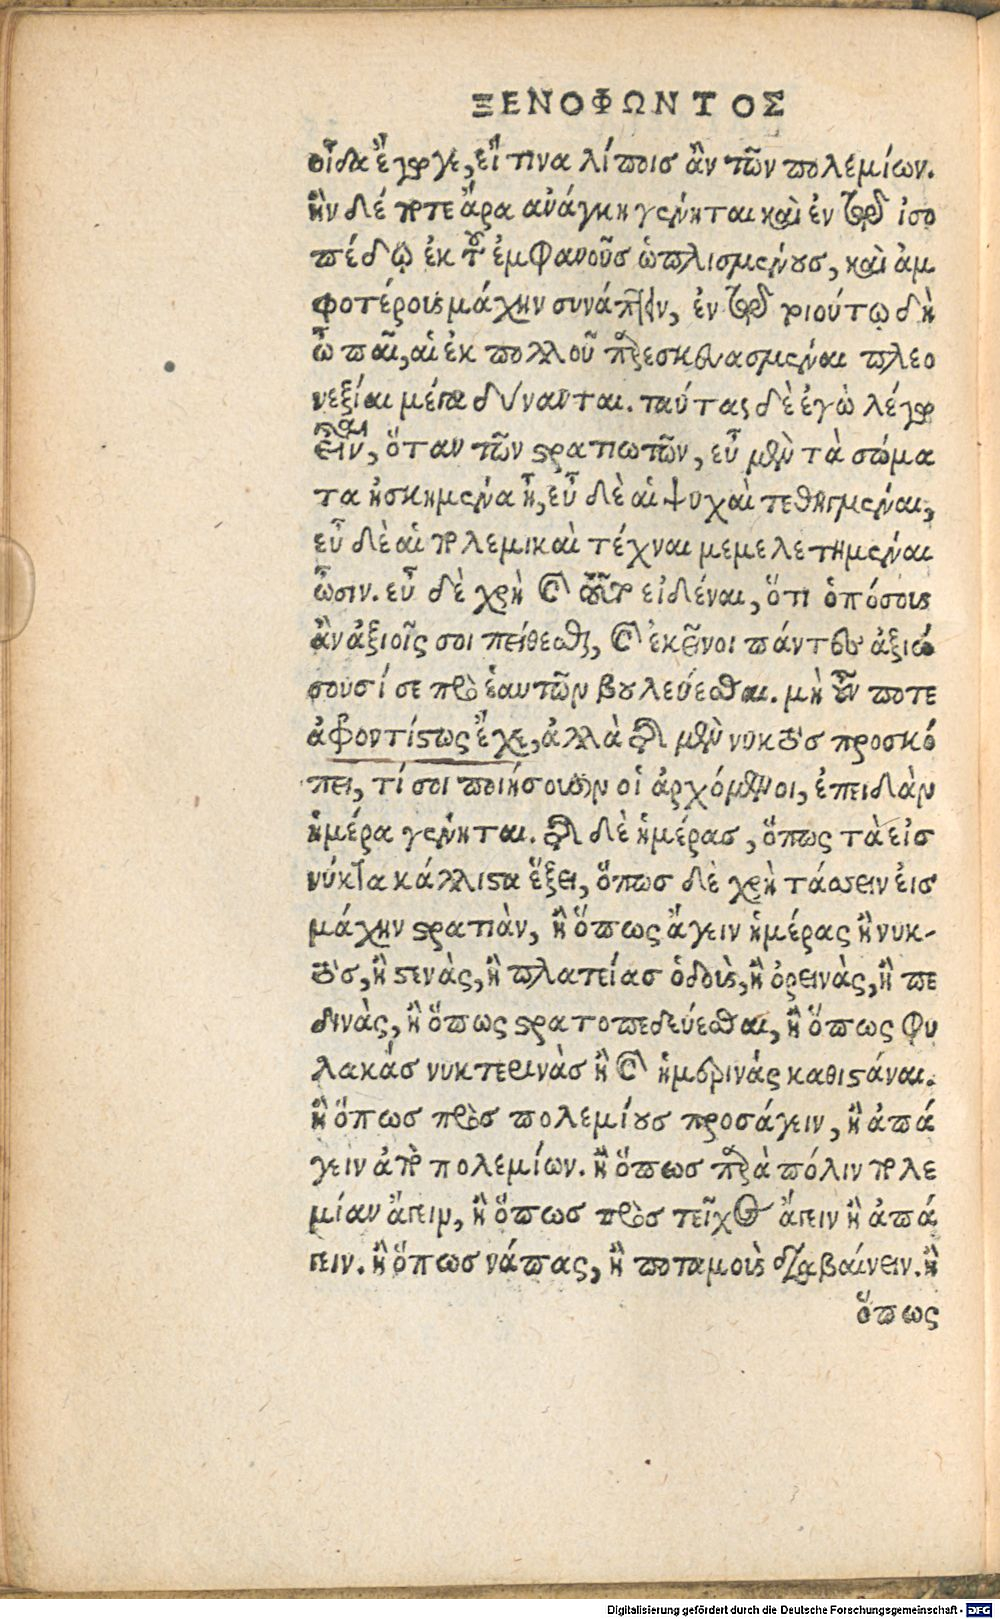 ΞΕΝΟΦΩΝΤΟΣ
οἶδα ἔγωγε, εἴ τινα λίποις ἂν τῶν πολεμίων.
ἢν δέ ποτε ἄρα ἀνάγκη γένηται καὶ ἐν τῷ ἰσο
πέδῳ ἐκ τοῦ ἐμφανοῦς ὡπλισμένους, καὶ ἀμ
φοτέρους μάχην συνάπτειν, ἐν τῷ τοιούτῳ δὴ
ὦ παῖ, αἱ ἐκ πολλοῦ παρεσκευασμέναι πλεο
νεξίαι μέγα δύνανται. ταύτας δὲ ἐγὼ λέγω
εἶναι, ὅταν τῶν στρατιωτῶν, εὖ μὲν τὰ σώμα
τα ἠσκημένα ᾖ, εὖ δὲ αἱ ψυχαὶ τεθηγμέναι,
εὖ δὲ αἱ πολεμικαὶ τέχναι μεμελετημέναι
ὦσιν. εὖ δὲ χρὴ καὶ τοῦτο εἰδέναι, ὅτι ὁπόσους
ἂν ἀξιοῖς σοι πείθεσθαι, καὶ ἐκεῖνοι πάντες ἀξιώ
σουσί σε πρὸ ἑαυτῶν βουλεύεσθαι. μὴ οὖν ποτε
ἀφροντίστως ἔχε, ἀλλὰ τῆς μὲν νυκτὸς προσκό
πει, τί σοι ποιήσουσιν οἱ ἀρχόμενοι, ἐπειδὰν
ἡμέρα γένηται. τῆς δὲ ἡμέρας, ὅπως τὰ εἰς
νύκτα κάλλιστα ἕξει, ὅπως δὲ χρὴ τάσσειν εἰς
μάχην στρατιὰν, ἢ ὅπως ἄγειν ἡμέρας ἢ νυκ-
τὸς, ἢ στενὰς, ἢ πλατείας ὁδοὺς, ἢ ὀρεινὰς, ἢ πε
δινὰς, ἢ ὅπως στρατοπεδεύεσθαι, ἢ ὅπως φυ
λακάς νυκτερινὰς ἢ καὶ ἡμερινάς καθιστάναι.
ἢ ὅπως πρὸς πολεμίους προσάγειν, ἢ ἀπά
γειν ἀπὸ πολεμίων. ἢ ὅπως παρὰ πόλιν πολε
μίαν ἄγειν, ἢ ὅπως πρὸς τεῖχος ἄγειν ἢ ἀπά
γειν. ἢ ὅπως νάπας, ἢ ποταμοὺς διαβαίνειν. ἢ
ὅπως
Digitalisierung gefördert durch die Deutsche Forschungsgemeinschaft - DFG